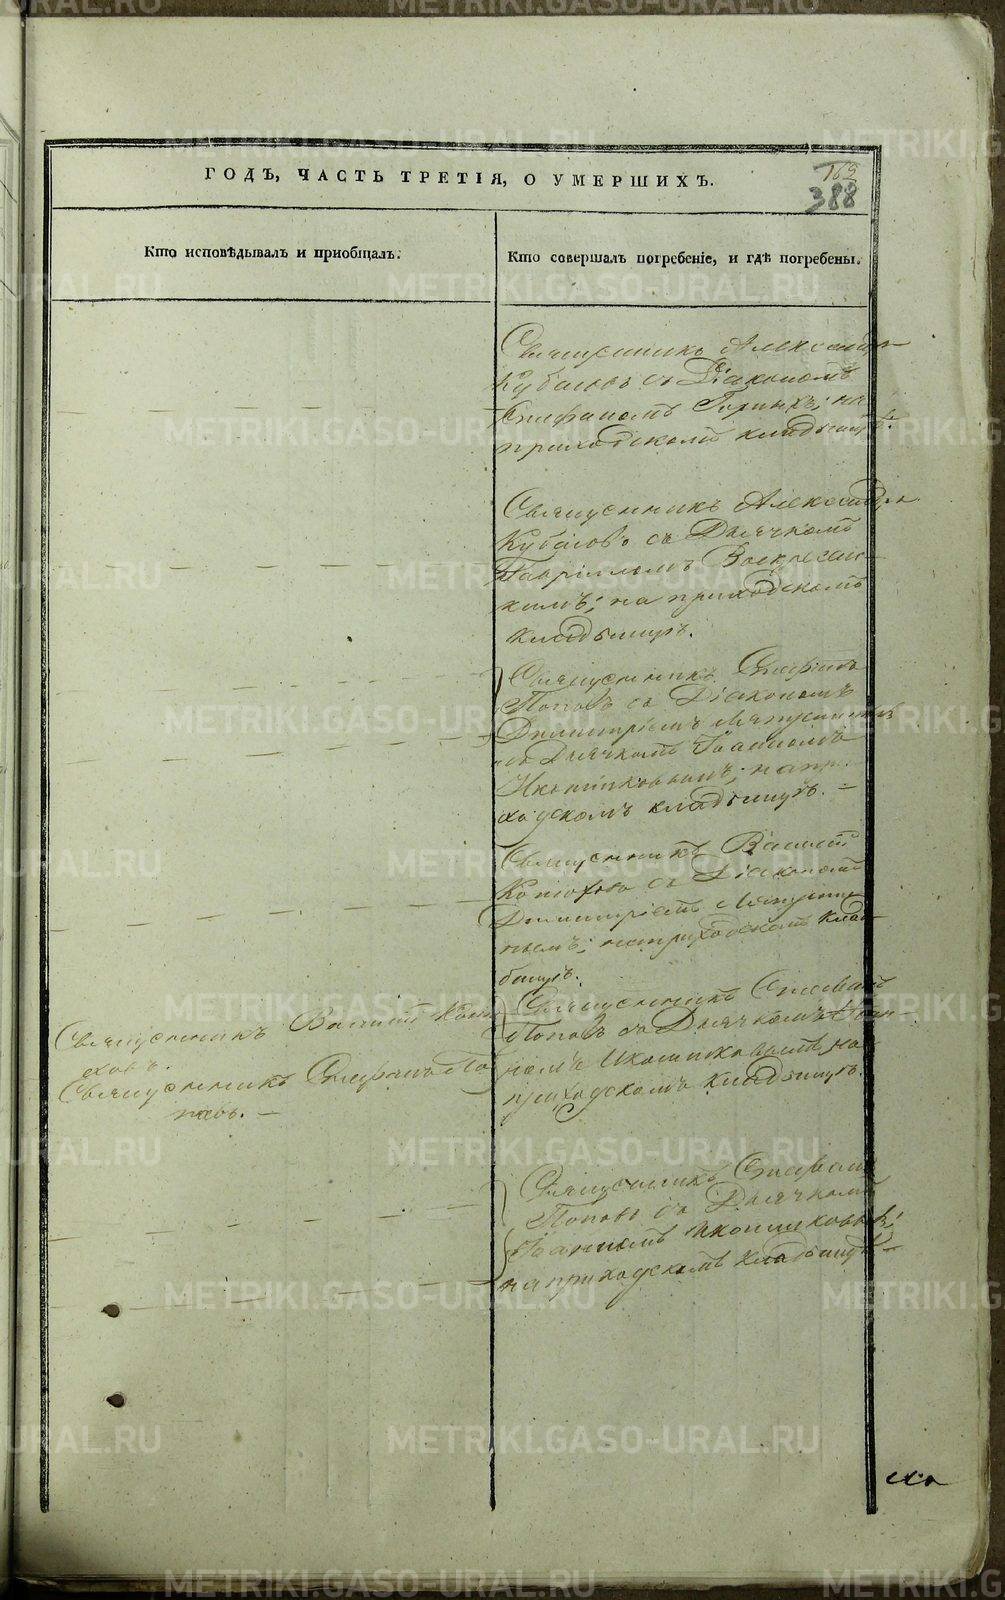 ГОДЪ, ЧАСТЬ ТРЕТІЯ, О УМЕРШИХЪ.
169
388
Кто исповѣдывалъ и приобщалъ.
Кто совершалъ погребеніе, и гдѣ погребены.
Священникъ Александръ
Кубасовъ съ Діакономъ
Стефаномъ на
приходскомъ кладбищѣ.
Священникъ Александръ
Кубасовъ съ Дьячкомъ
Гавріиломъ Воскресен-
кимъ; на приходскомъ
кладбищѣ.
Священникъ Стефанъ
Поповъ съ Діакономъ
Димитріемъ
съ Дьячкомъ Іоанномъ
Иконниковымъ; на при-
ходскомъ кладбищѣ. =
Священникъ Василій
съ Діакономъ
Димитріемъ
нымъ; на приходскомъ клад-
бищѣ.
Священникъ Стефанъ
Поповъ съ Дьячкомъ Іоан-
номъ Иконниковымъ, на
приходскомъ кладбищѣ.
Священникъ Василій
ховъ.
Священникъ Стефанъ По
повъ. —
Священникъ Стефанъ
Поповъ съ Дьячкомъ
Іоанномъ Иконниковымъ;
на приходскомъ кладбищѣ =
METRIKI.GASO-URAL.RU